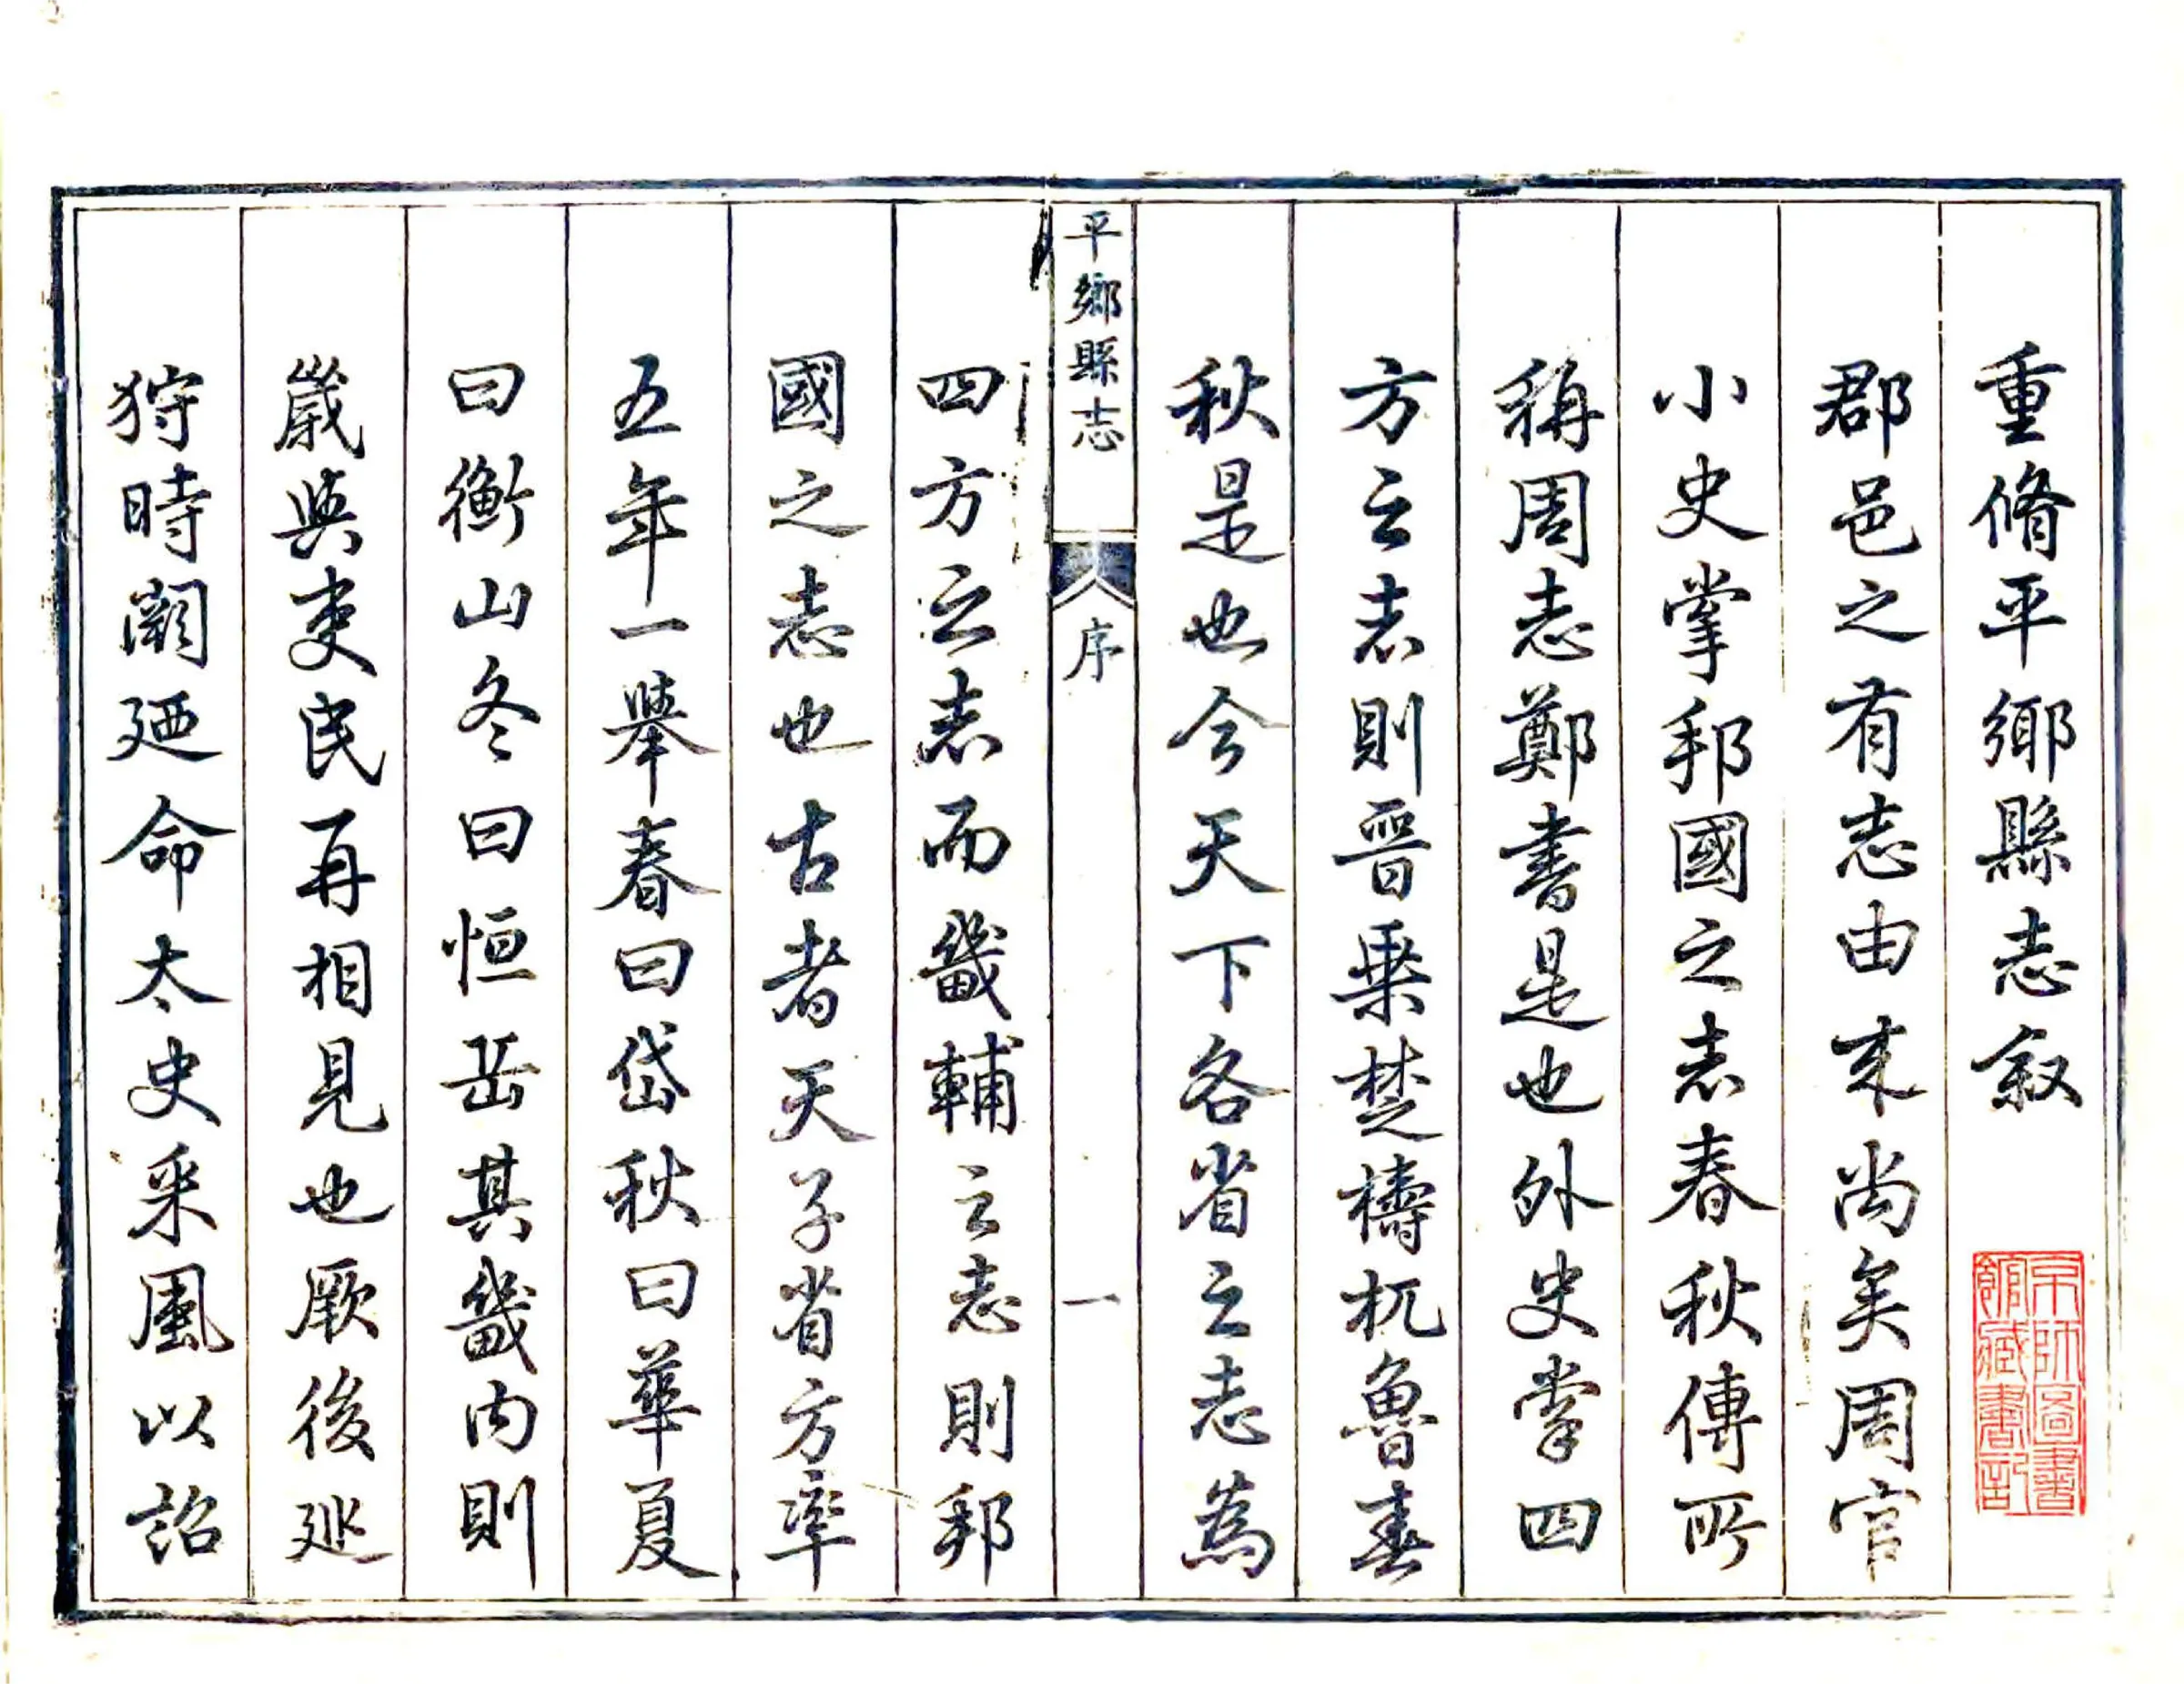 重脩平鄉縣志敘
郡邑之有志由来尚矣周官
小史掌邦國之志春秋傳所
稱周志鄭書是也外史掌四
方之志則晉乗楚檮杌魯春
秋是也今天下各省之志為
平鄉縣志
序
一
四方之志而畿輔之志則邦
國之志也古者天子省方率
五年一舉春曰岱秋曰華夏
曰衡山冬曰恒岳其畿内則
嵗與吏民再相見也厥後廵
狩時闕廼命太史采風以詔
京師圖書
館藏書記